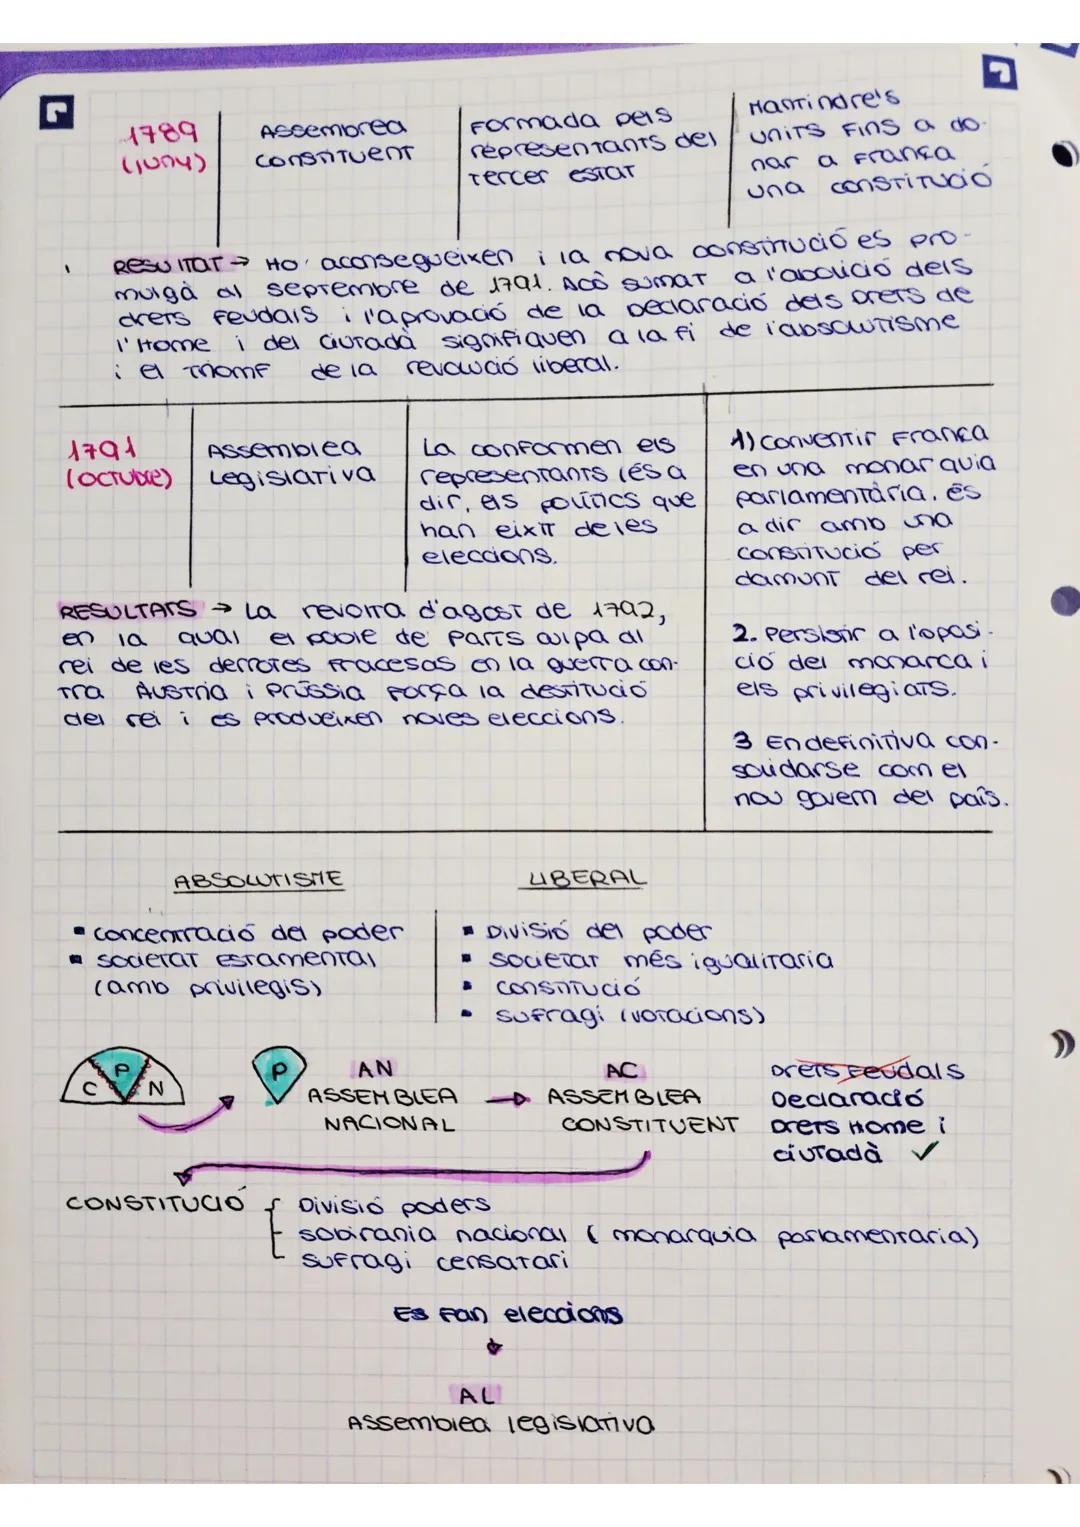 1789
(juny)
Assemblea
constituent
Formada pels
representants del
tercer estat
Mantindre's
units fins a do-
nar a França
una constitució
RESULTAT → Ho aconsegueixen i la nova constitució es pro-
mulgà al septembre de 1791. Acò sumat a l'abolició dels
drets feudals i l'aprovació de la Declaració dels Drets de
l'Home i del Ciutadà signifiquen a la fi de l'absolutisme
i el triomf de la revolució liberal.
1791
(octubre)
Assemblea
Legislativa
La conformen els
representants (és a
dir, els polítics que
han eixit de les
eleccions.
1) Convertir França
en una monarquia
parlamentària, és
a dir amb una
constitució per
damunt del rei.
2. Persistir a l'oposi-
ció del monarca i
els privilegiats.
3 En definitiva con-
solidarse com el
nou govern del país.
RESULTATS → La revolta d'agost de 1792,
en la qual el poble de París culpa al
rei de les derrotes fracesas en la guerra con-
tra Àustria i Prússia força la destitució
del rei i es produeixen noves eleccions.
ABSOLUTISME
▪ concentració del poder
▪ societat estamental
(amb privilegis)
LIBERAL
▪ Divisió del poder
▪ societat més igualitaria
▪ constitució
▪ sufragi (votacions)
C P N
P
AN
ASSEMBLEA
NACIONAL
→
AC
ASSEMBLEA
CONSTITUENT
Drets Feudals
Declaració
Drets Home i
ciutadà ✓
CONSTITUCIÓ
Divisió poders
sobirania nacional (monarquia parlamentaria)
sufragi censatari
Es fan eleccions
AL
Assemblea legislativa